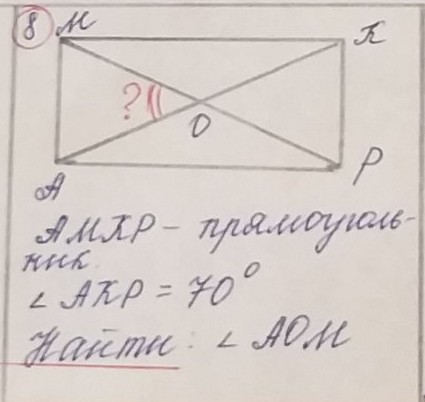 8 М К
?
О
А Р
АМКР – прямоуголь-
ник.
∠ АКР = 70°
Найти : ∠ АОМ